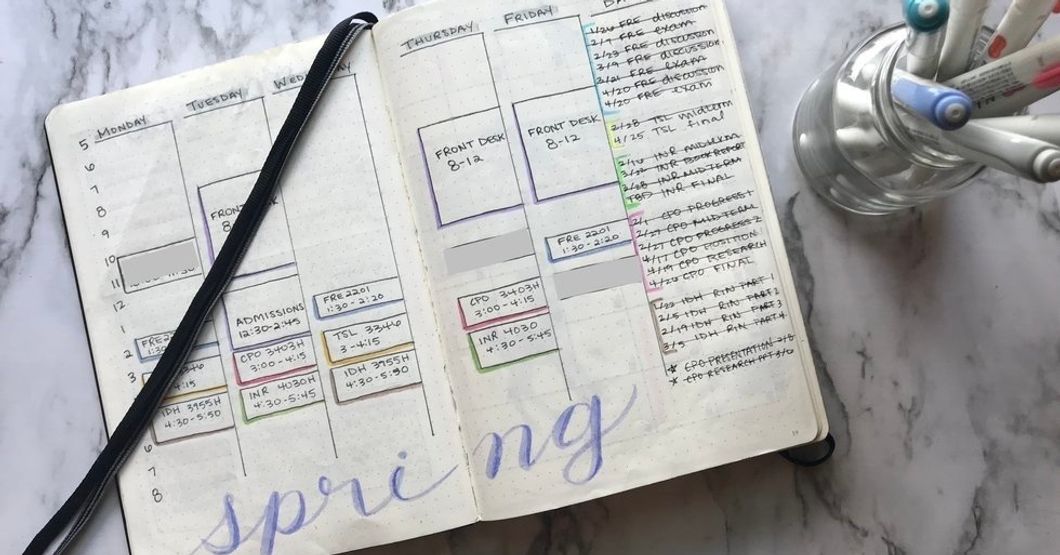 MONDAY
5
6
7
8
9
10
11
12
1
2
3
6
7
8
FRE
1:30
4:15
IDH 3955H
4:30-5:50
TUESDAY
FRONT
8
ADMISSIONS
12:30-2:45
CPO 3403H
3:00-4:15
INR 4030H
4:30-5:45
WED
FRE 2201
1:30-2:20
TSL 3346
3-4:15
IDH 3955H
4:30-5:50
THURSDAY
FRONT DESK
8-12
CPO 3403H
3:00-4:15
INR 4030
4:30-5:45
FRIDAY
FRONT DESK
8-12
FRE 2201
1:30-2:20
1/26 FRE discussion
2/9 FRE exam
2/23 FRE discussion
3/9 FRE discussion
3/21 FRE exam
4/20 FRE discussion
4/20 FRE exam
2/28 TSL midterm
4/25 TSL final
INR MIDTERM
INR BOOK REPORT
INR MIDTERM
TBD INR FINAL
2/1 CPO PROGRESS 1
2/27 CPO MIDTERM
2/27 CPO PROGRESS 2
4/17 CPO POSITION
4/19 CPO RESEARCH
4/26 CPO FINAL
1/22 IDH RIN PART 1
2/5 IDH RIN PART 2
2/19 IDH RIN PART 3
3/5 IDH RIN PART 4
★ CPO PRESENTATION
★ CPO RESEARCH PPT
spring